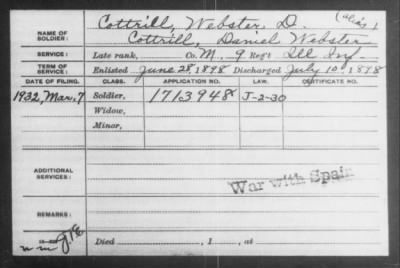 NAME OF SOLDIER: Cottrill, Webster D. (alias)
Cottrill, Daniel Webster
SERVICE: Late rank, Co. M, 9 Reg't Ill Inf
TERM OF SERVICE: Enlisted June 28, 1898 Discharged July 10, 1898
DATE OF FILING. CLASS. APPLICATION NO. LAW. CERTIFICATE NO.
1932, Mar, 7 Soldier, 1713948 J-2-30
Widow,
Minor,
ADDITIONAL SERVICES:
War with Spain
REMARKS:
Died , 1 , at